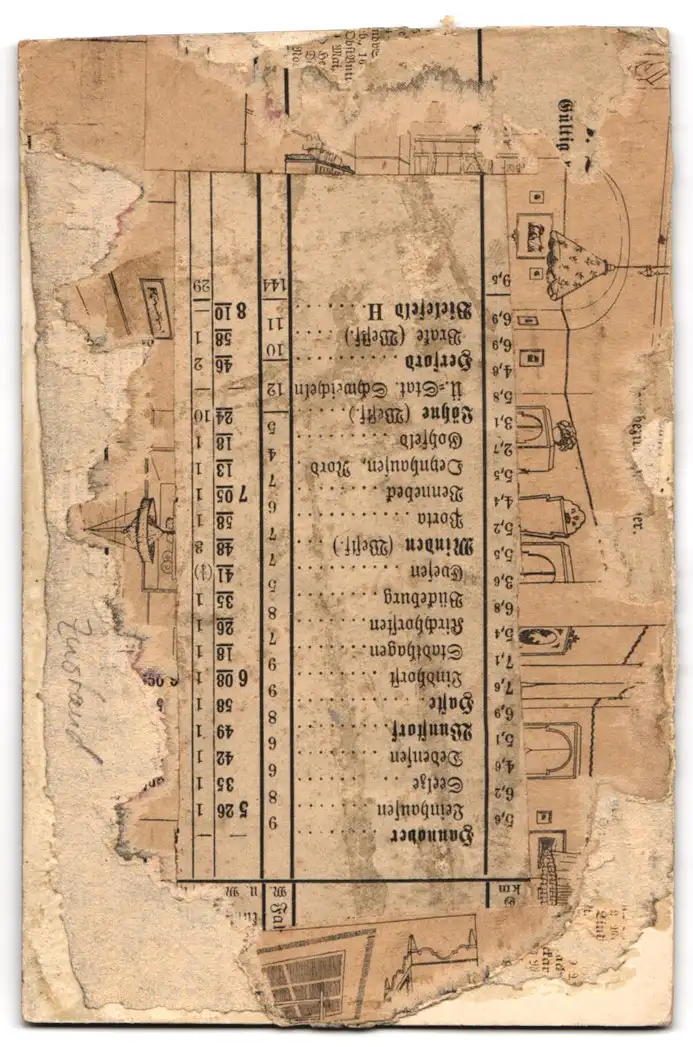 km
Hannover . . . . . . . — —
5,6 Leinhausen . . . . . . 9 5 26 1
6,2 Seelze . . . . . . . 8 35 1
4,6 Dedensen . . . . . . . 6 42 1
5,1 Wunstorf . . . . . . . 6 49 1
6,9 Haste . . . . . . . 8 58 1
7,6 Lindhorst . . . . . . . 9 6 08 1
7,1 Stadthagen . . . . . . 9 18 1
5,4 Kirchhorsten . . . . . . 7 26 1
6,8 Bückeburg . . . . . . 8 35 1
3,6 Evesen . . . . . . . 5 41
5,5 Minden (Westf.) . . . . 7 48 8
5,2 Porta . . . . . . . 7 58 1
4,4 Vennebeck . . . . . . 6 7 05 1
5,5 Oeynhausen, Nord . . . . 7 13 1
2,7 Gohfeld . . . . . . . 4 18 1
3,1 Löhne (Westf.) . . . . . 5 24 10
5,8 Ü.-Stat. Schweicheln 12 —
4,8 Herford . . . . . . . 46 2
6,9 Brake (Westf.) . . . . . 10 58 1
6,9 Bielefeld H. . . . . . 11 8 10 —
9,5 144 29
Gültig
Zustand